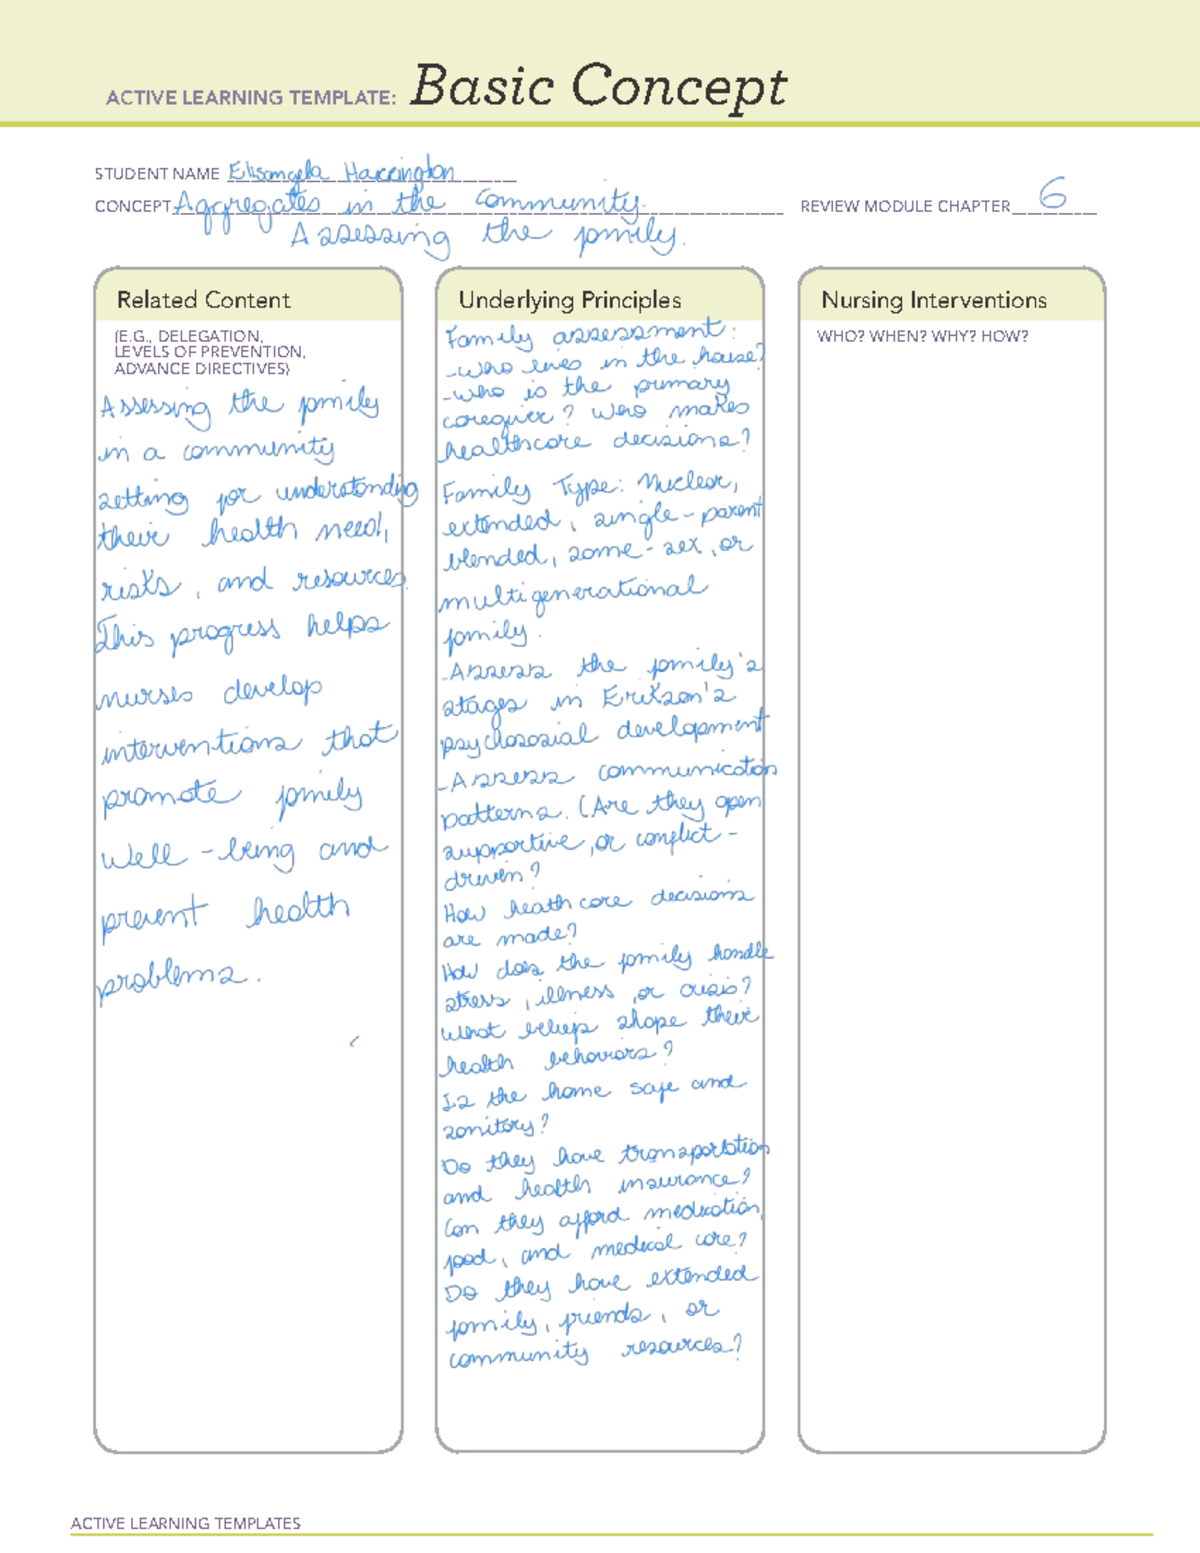 ACTIVE LEARNING TEMPLATE: Basic Concept
STUDENT NAME Elisangela Harrington
CONCEPT Aggregates in the community. REVIEW MODULE CHAPTER 6
Assessing the family.
Related Content
(E.G., DELEGATION,
LEVELS OF PREVENTION,
ADVANCE DIRECTIVES)
Assessing the family
in a community
setting for understanding
their health need,
risks, and resources.
This progress helps
nurses develop
interventions that
promote family
well-being and
prevent health
problems.
Underlying Principles
Family assessment:
-who lives in the house?
-who is the primary
caregiver? Who makes
healthcare decisions?
Family Type: Nuclear,
extended, single-parent
blended, same-sex, or
multigenerational
family.
-Assess the family's
stages in Erikson's
psychososial development
-Assess communication
patterns. (Are they open
supportive, or conflict-
driven?
How heath care decisions
are made?
How does the family handle
stress, illness, or crisis?
What beliefs shape their
health behaviors?
Is the home safe and
sanitory?
Do they have transportation
and health insurance?
Can they afford medication,
food, and medical care?
Do they have extended
family, friends, or
community resources?
Nursing Interventions
WHO? WHEN? WHY? HOW?
ACTIVE LEARNING TEMPLATES